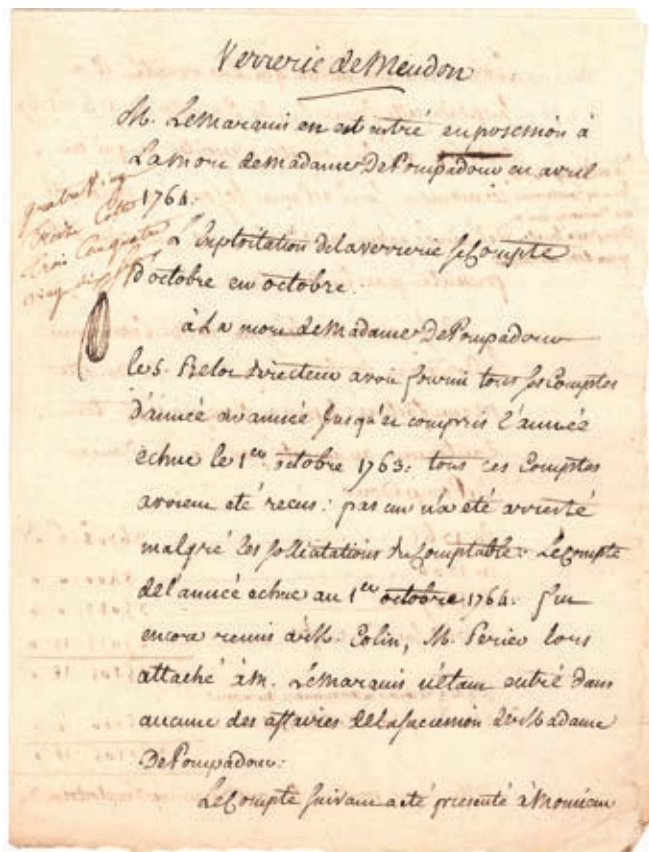 Verrerie de Meudon
M. Le Marquis en est entré en possession à
La mort de Madame De Pompadour en avril
1764.
L'Exploitation de la verrerie se Compte
d'octobre en octobre.
à La mort de Madame De Pompadour
le S. directeur avoit fourni tous ses Comptes
d'année en année jusqu'et compris l'année
échue le 1er octobre 1763. tous ces Comptes
avoient été recus : pas un n'a été arresté
malgré les sollicitations du Comptable : Le Compte
de l'année échue au 1er octobre 1764. fut
encore remis à M. Colin, M. lors
attaché à M. Le Marquis n'étant entré dans
aucune des affaires de la succession de Madame
De Pompadour.
Le Compte suivant a été présenté à Monsieur
quatre vingt
trois Cinquante
cinq